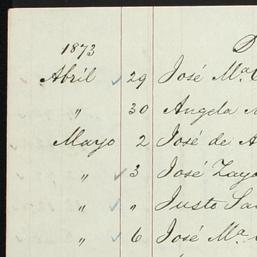 1873
Abríl 29 José Mª
" 30 Angela
Mayo 2 José de
" 3 José Zayo
" " Justo
" 6 José Mª